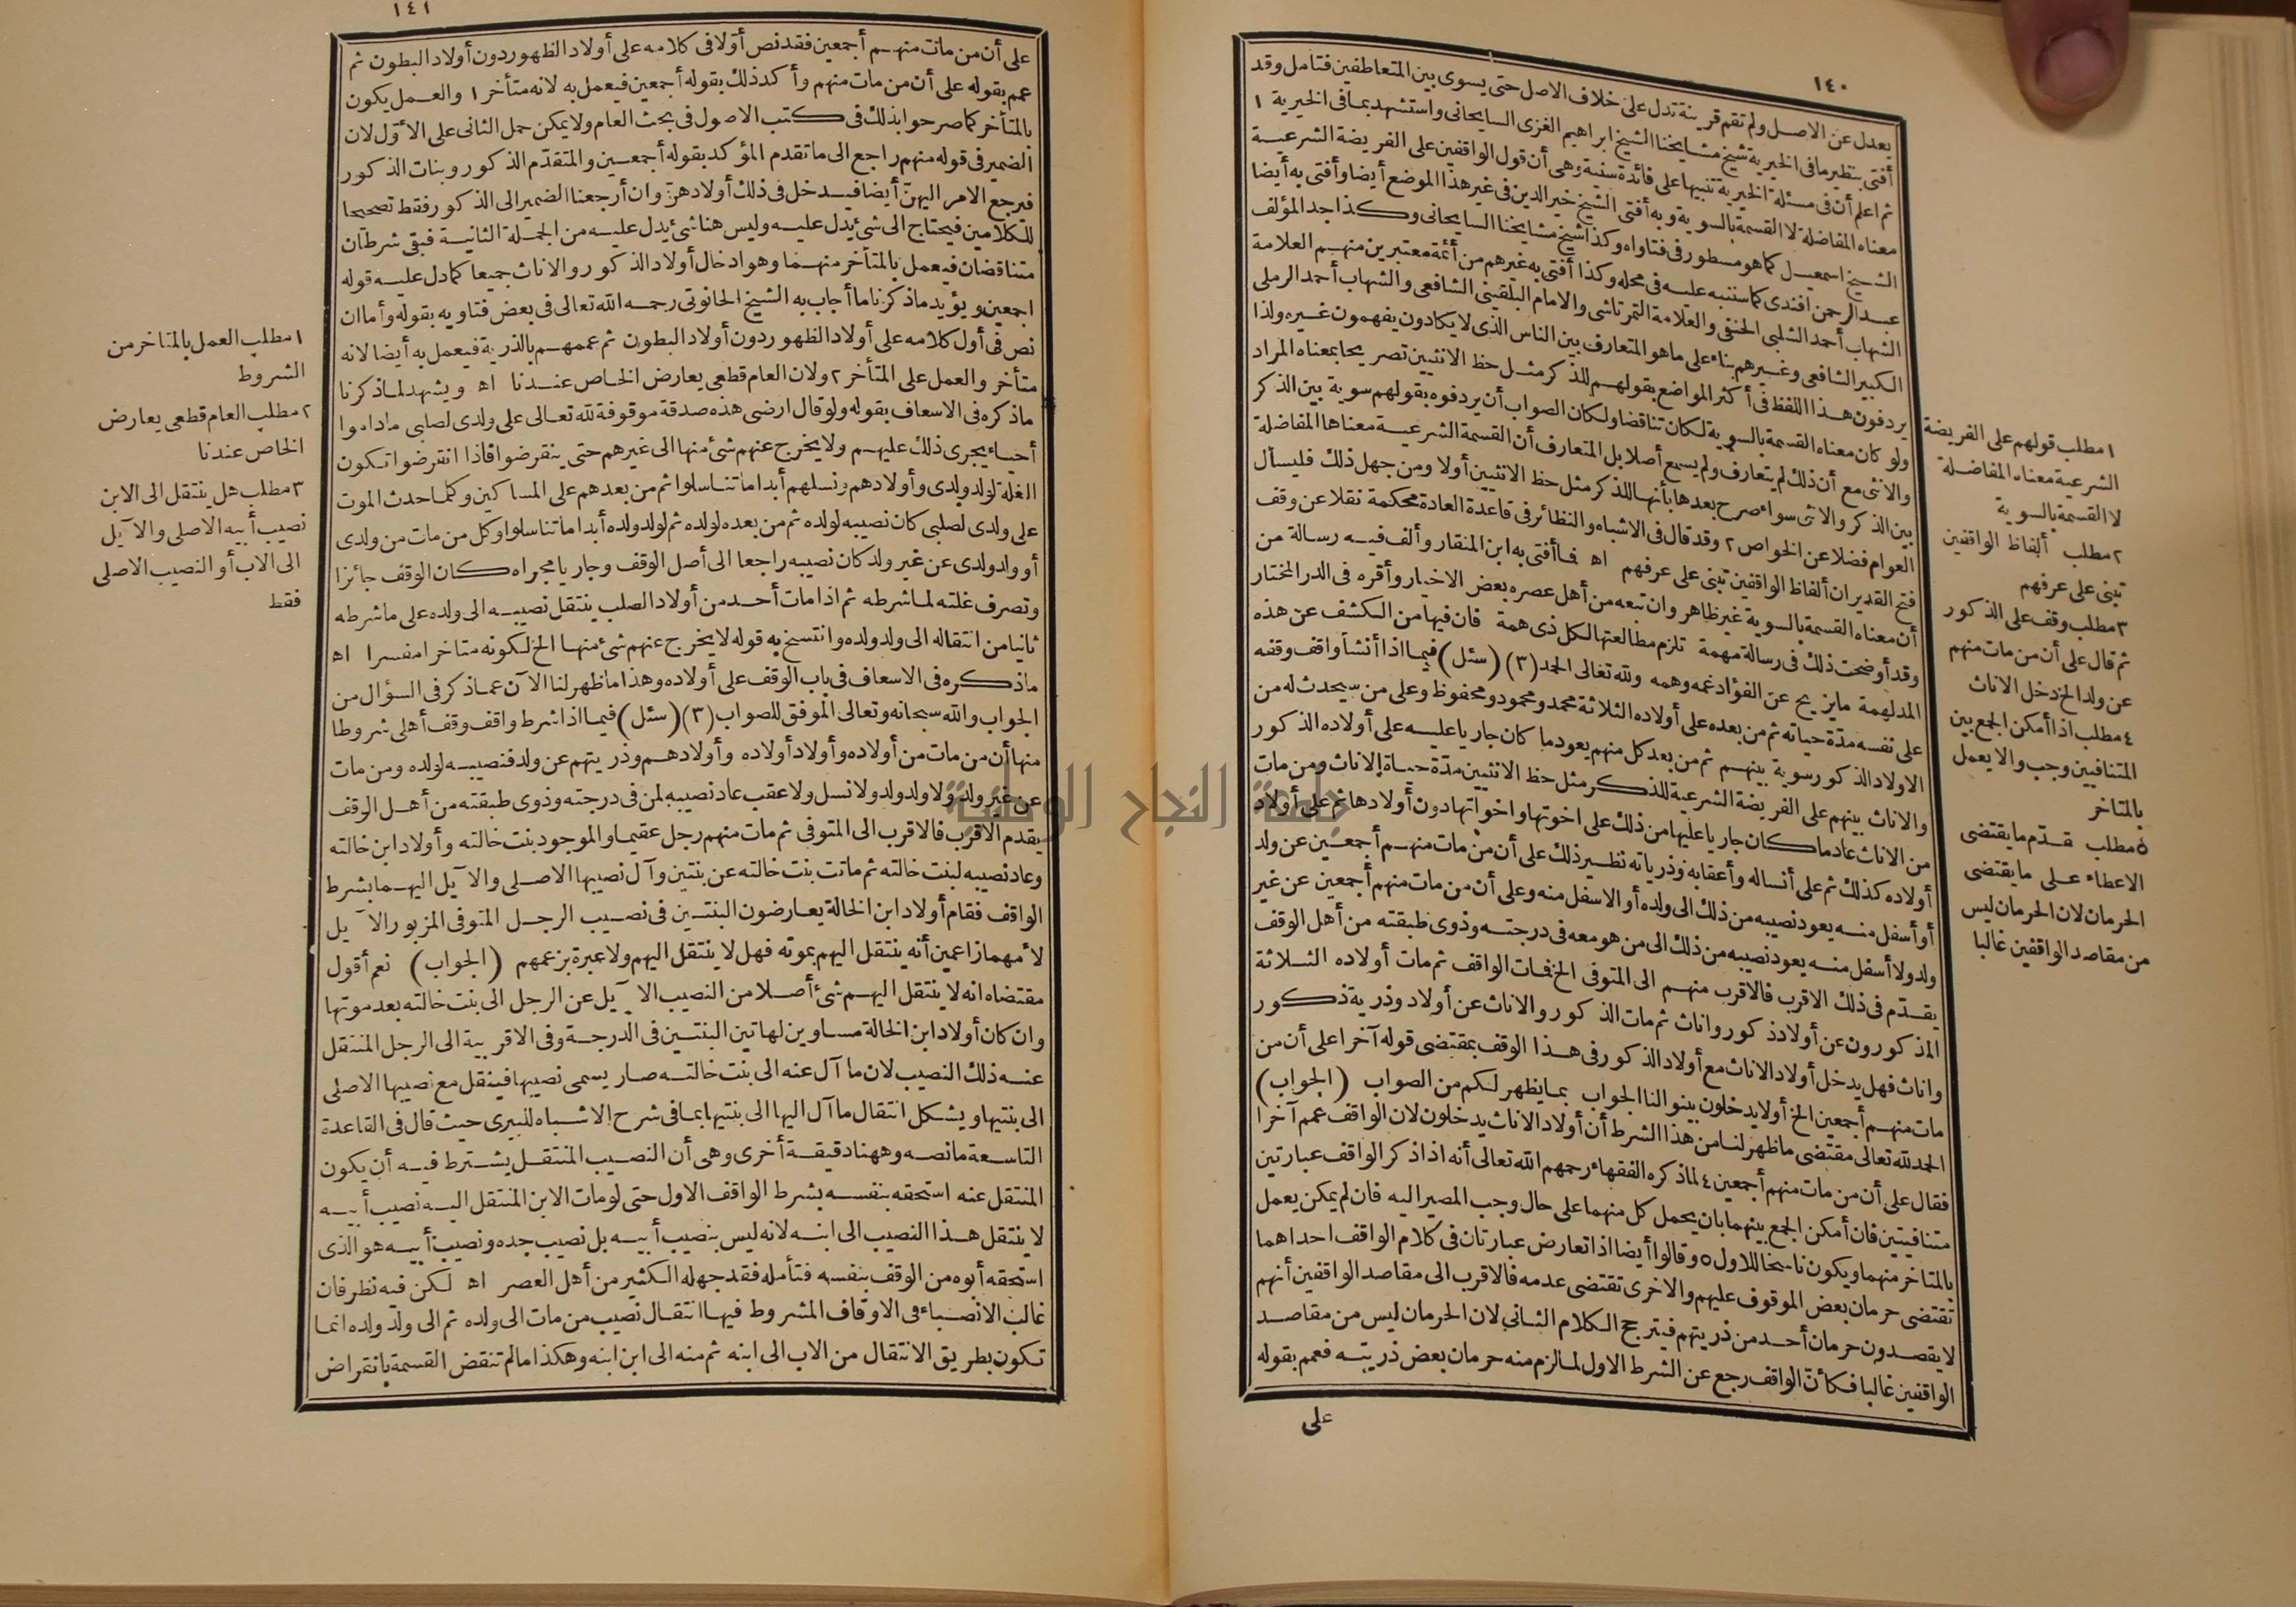 ١٤٠
يعدل عن الاصل ولم تقم قرينة تدل على خلاف الاصل حتى يسوى بين المتعاطفين فتأمل وقد
أفتى بنظير ما فى الخيرية شيخ مشايخنا الشيخ ابراهيم الغزى السايحانى واستشهد بما فى الخيرية ١
ثم اعلم أن فى مسئلة الخيرية تنبيها على فائدة سنية وهى أن قول الواقفين على الفريضة الشرعية
معناه المفاضلة لا القسمة بالسوية وبه أفتى الشيخ خير الدين فى غير هذا الموضع أيضا وأفتى به أيضا
الشيخ اسمعيل كما هو مسطور فى فتاواه وكذا شيخ مشايخنا السايحانى وكذا جد المؤلف
عبد الرحمن افندى كما سننبه عليه فى محله وكذا أفتى به غيرهم من أئمة معتبرين منهم العلامة
الشهاب أحمد الشلبى الحنفى والعلامة التمرتاشى والامام البلقينى الشافعى والشهاب أحمد الرملى
الكبير الشافعى وغيرهم بناء على ما هو المتعارف بين الناس الذى لا يكادون يفهمون غيره ولذا
يردفون هذا اللفظ فى أكثر المواضع بقولهم للذكر مثل حظ الانثيين تصريحا بمعناه المراد
ولو كان معناه القسمة بالسوية لكان تناقضا ولكان الصواب أن يردفوه بقولهم سوية بين الذكر
والانثى مع أن ذلك لم يتعارف ولم يسمع أصلا بل المتعارف أن القسمة الشرعية معناها المفاضلة
بين الذكر والانثى سواء صرح بعدها بأنها للذكر مثل حظ الانثيين أولا ومن جهل ذلك فليسأل
العوام فضلا عن الخواص ٢ وقد قال فى الاشباه والنظائر فى قاعدة العادة محكمة نقلا عن وقف
فتح القدير ان ألفاظ الواقفين تبنى على عرفهم اه فما أفتى به ابن المنقار وألف فيه رسالة من
أن معناه القسمة بالسوية غير ظاهر وان تبعه من أهل عصره بعض الاخيار وأقره فى الدر المختار
وقد أوضحت ذلك فى رسالة مهمة تلزم مطالعتها لكل ذى همة فان فيها من الكشف عن هذه
المدلهمة ما يزيح عن الفؤاد غمه وهمه ولله تعالى الحمد (٣) (سئل) فيما اذا أنشأ واقف وقفه
على نفسه مدّة حياته ثم من بعده على أولاده الثلاثة محمد ومحمود ومحفوظ وعلى من سيحدث له من
الاولاد الذكور سوية بينهم ثم من بعد كل منهم يعود ما كان جاريا عليه على أولاده الذكور
والاناث بينهم على الفريضة الشرعية للذكر مثل حظ الانثيين مدّة حياة الاناث ومن مات
من الاناث عاد ما كان جاريا عليها من ذلك على اخوتها واخواتها دون أولادها ثم على أولاد
أولاده كذلك ثم على أنساله وأعقابه وذرياته نظير ذلك على أن من مات منهم أجمعين عن ولد
أو أسفل منه يعود نصيبه من ذلك الى ولده أو الاسفل منه وعلى أن من مات منهم أجمعين عن غير
ولد ولا أسفل منه يعود نصيبه من ذلك الى من هو معه فى درجته وذوى طبقته من أهل الوقف
يقدّم فى ذلك الاقرب فالاقرب منهم الى المتوفى الخ فمات الواقف ثم مات أولاده الثلاثة
المذكورون عن أولاد ذكور واناث ثم مات الذكور والاناث عن أولاد وذرية ذكور
واناث فهل يدخل أولاد الاناث مع أولاد الذكور فى هذا الوقف بمقتضى قوله آخرا على أن من
مات منهم أجمعين الخ أولا يدخلون بينوا لنا الجواب بما يظهر لكم من الصواب (الجواب)
الحمد لله تعالى مقتضى ما ظهر لنا من هذا الشرط أن أولاد الاناث يدخلون لان الواقف عمم آخرا
فقال على أن من مات منهم أجمعين ٤ لما ذكره الفقهاء رحمهم الله تعالى أنه اذا ذكر الواقف عبارتين
متنافيتين فان أمكن الجمع بينهما بان يحمل كل منهما على حال وجب المصير اليه فان لم يمكن يعمل
بالمتاخر منهما ويكون ناسخا للاول ٥ وقالوا أيضا اذا تعارض عبارتان فى كلام الواقف احداهما
تقتضى حرمان بعض الموقوف عليهم والاخرى تقتضى عدمه فالاقرب الى مقاصد الواقفين أنهم
لا يقصدون حرمان أحد من ذريتهم فيترجح الكلام الثانى لان الحرمان ليس من مقاصد
الواقفين غالبا فكأنّ الواقف رجع عن الشرط الاول لما لزم منه حرمان بعض ذريته فعمم بقوله
على
١ مطلب قولهم على الفريضة
الشرعية معناه المفاضلة
لا القسمة بالسوية
٢ مطلب ألفاظ الواقفين
تبنى على عرفهم
٣ مطلب وقف على الذكور
ثم قال على أن من مات منهم
عن ولد الخ دخل الاناث
٤ مطلب اذا أمكن الجمع بين
المتنافيين وجب والا يعمل
بالمتاخر
٥ مطلب قدّم ما يقتضى
الاعطاء على ما يقتضى
الحرمان لان الحرمان ليس
من مقاصد الواقفين غالبا
١٤١
على أن من مات منهم أجمعين فقد نص أوّلا فى كلامه على أولاد الظهور دون أولاد البطون ثم
عمم بقوله على أن من مات منهم وأكد ذلك بقوله أجمعين فيعمل به لانه متأخر ١ والعمل يكون
بالمتأخر كما صرحوا بذلك فى كتب الاصول فى بحث العام ولا يمكن حمل الثانى على الاوّل لان
الضمير فى قوله منهم راجع الى ما تقدم المؤكد بقوله أجمعين والمتقدّم الذكور وبنات الذكور
فيرجع الامر اليهنّ أيضا فيدخل فى ذلك أولادهنّ وان أرجعنا الضمير الى الذكور فقط تصحيحا
للكلامين فيحتاج الى شئ يدل عليه وليس هنا شئ يدل عليه من الجملة الثانية فبقى شرطان
متناقضان فيعمل بالمتأخر منهما وهو ادخال أولاد الذكور والاناث جميعا كما دل عليه قوله
اجمعين ويؤيد ما ذكرنا ما أجاب به الشيخ الحانوتى رحمه الله تعالى فى بعض فتاويه بقوله وأما ان
نص فى أول كلامه على أولاد الظهور دون أولاد البطون ثم عممهم بالذرية فيعمل به أيضا لانه
متأخر والعمل على المتأخر ٢ ولان العام قطعى يعارض الخاص عندنا اه ويشهد لما ذكرنا
ما ذكره فى الاسعاف بقوله ولو قال ارضى هذه صدقة موقوفة لله تعالى على ولدى لصلبى ما داموا
أحياء يجرى ذلك عليهم ولا يخرج عنهم شئ منها الى غيرهم حتى ينقرضوا فاذا انقرضوا تكون
الغلة لولد ولدى وأولادهم ونسلهم أبدا ما تناسلوا ثم من بعدهم على المساكين وكلما حدث الموت
على ولدى لصلبى كان نصيبه لولده ثم من بعده لولده ثم لولد ولده أبدا ما تناسلوا وكل من مات من ولدى
أو ولد ولدى عن غير ولد كان نصيبه راجعا الى أصل الوقف وجاريا مجراه كان الوقف جائزا
وتصرف غلته لما شرطه ثم اذا مات أحد من أولاد الصلب ينتقل نصيبه الى ولده على ما شرطه
ثانيا من انتقاله الى ولد ولده وانتسخ به قوله لا يخرج عنهم شئ منها الخ لكونه متاخرا مفسرا اه
ما ذكره فى الاسعاف فى باب الوقف على أولاده وهذا ما ظهر لنا الآن عما ذكر فى السؤال من
الجواب والله سبحانه وتعالى الموفق للصواب (٣) (سئل) فيما اذا شرط واقف وقف أهلى شروطا
منها أن من مات من أولاده وأولاد أولاده وأولادهم وذريتهم عن ولد فنصيبه لولده ومن مات
عن غير ولد ولا ولد ولد ولا نسل ولا عقب عاد نصيبه لمن فى درجته وذوى طبقته من أهل الوقف
يقدم الاقرب فالاقرب الى المتوفى ثم مات منهم رجل عقيما والموجود بنت خالته وأولاد ابن خالته
وعاد نصيبه لبنت خالته ثم ماتت بنت خالته عن بنتين وآل نصيبها الاصلى والآيل اليهما بشرط
الواقف فقام أولاد ابن الخالة يعارضون البنتين فى نصيب الرجل المتوفى المزبور الآيل
لأمهما زاعمين أنه ينتقل اليهم بموته فهل لا ينتقل اليهم ولا عبرة بزعمهم (الجواب) نعم أقول
مقتضاه انه لا ينتقل اليهم شئ أصلا من النصيب الآيل عن الرجل الى بنت خالته بعد موتها
وان كان أولاد ابن الخالة مساوين لهاتين البنتين فى الدرجة وفى الاقربية الى الرجل المنتقل
عنه ذلك النصيب لان ما آل عنه الى بنت خالته صار يسمى نصيبها فينتقل مع نصيبها الاصلى
الى بنتيها ويشكل انتقال ما آل اليها الى بنتيها بما فى شرح الاشباه للبيرى حيث قال فى القاعدة
التاسعة ما نصه وههنا دقيقة أخرى وهى أن النصيب المنتقل يشترط فيه أن يكون
المنتقل عنه استحقه بنفسه بشرط الواقف الاول حتى لو مات الابن المنتقل اليه نصيب أبيه
لا ينتقل هذا النصيب الى ابنه لانه ليس بنصيب أبيه بل نصيب جده ونصيب أبيه هو الذى
استحقه أبوه من الوقف بنفسه فتأمله فقد جهله الكثير من أهل العصر اه لكن فيه نظر فان
غالب الانصباء فى الاوقاف المشروط فيها انتقال نصيب من مات الى ولده ثم الى ولد ولده انما
تكون بطريق الانتقال من الاب الى ابنه ثم منه الى ابن ابنه وهكذا ما لم تنقض القسمة بانقراض
١ مطلب العمل بالمتاخر من
الشروط
٢ مطلب العام قطعى يعارض
الخاص عندنا
٣ مطلب هل ينتقل الى الابن
نصيب أبيه الاصلى والآيل
الى الاب أو النصيب الاصلى
فقط
جامعة النجاح الوطنية